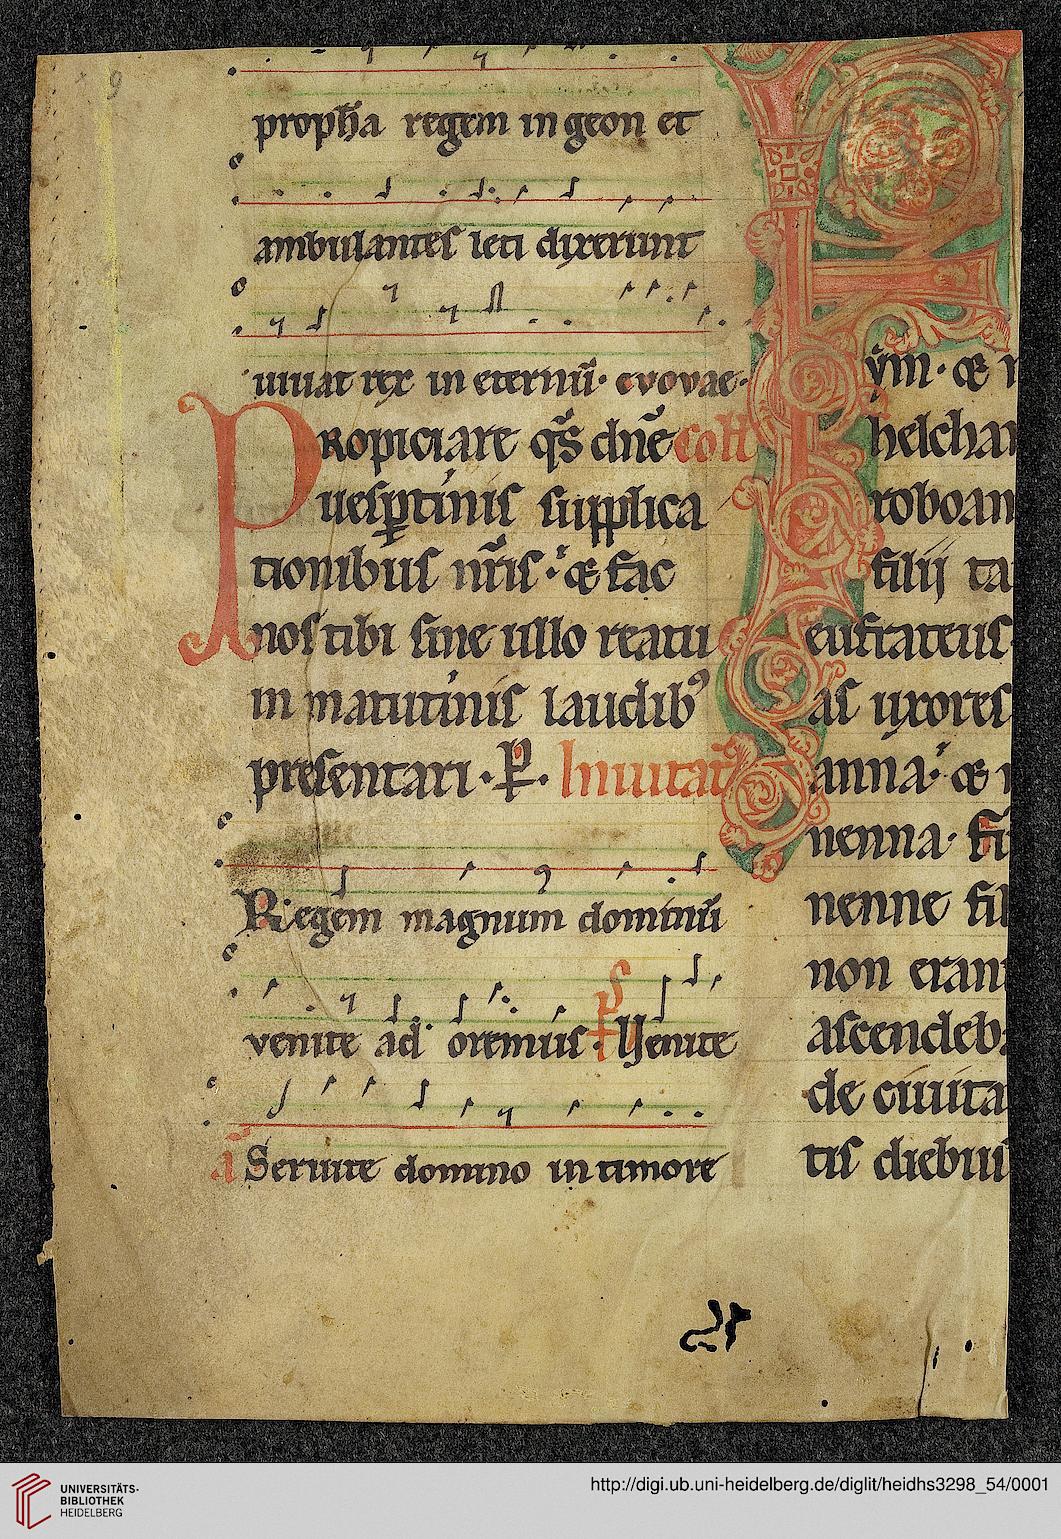 9
propha regem in geon et
ambulantes leti dixerunt
uiuat rex in eternū· evovae·
Propiciare qs̄ dn̄e Coll
uesptinis supplica
tionibus nr̄is · & fac
nos tibi sine ullo reatu
in matutinis laudibꝰ
presentari · P · Inuitat
Regem magnum dominū
venite ad oremus · ps Uenite
a Seruite domino in timore
ym · &
helcha
roboam
filij ta
eufrateus
as uxores
anna · &
nenna · fu
nenne fil
non erant
ascendeb
de ciuita
tis diebus
UNIVERSITÄTS-
BIBLIOTHEK
HEIDELBERG
http://digi.ub.uni-heidelberg.de/diglit/heidhs3298_54/0001